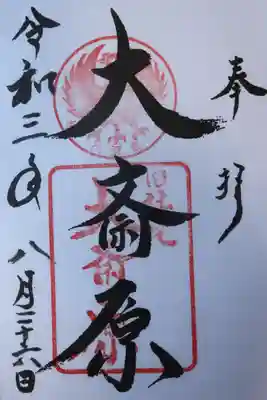 奉拝
大斎原
旧社地
令和三年
八月二十六日